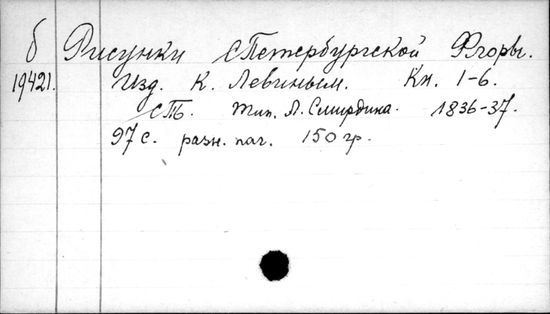 б Рисунки СПетербургской Флоры.
19421. Изд. К. Левиным. Кн. 1-6.
СПБ. Тип. А. Смирдина. 1836-37.
97 с. разн. паг. 150 гр.